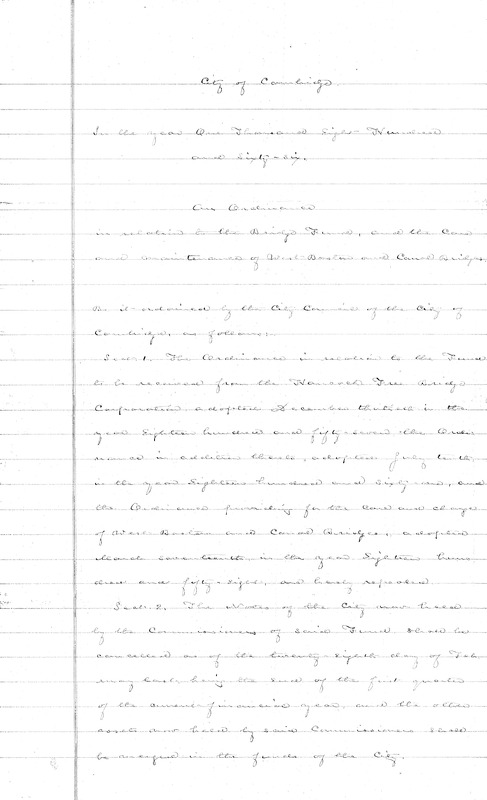 City of Cambridge.
In the year One Thousand Eight Hundred
and Sixty-six.
An Ordinance
in relation to the Bridge Fund, and the Care
and maintenance of West Boston and Canal Bridges.
Be it ordained by the City Council of the City of
Cambridge, as follows:
Sect. 1. The Ordinance in relation to the Fund
to be received from the Hancock Free Bridge
Corporation adopted December thirtieth in the
year Eighteen hundred and fifty-seven the Ordi-
nance in addition thereto, adopted July tenth,
in the year Eighteen hundred and Sixty-one, and
the Ordinance providing for the care and charge
of West Boston and Canal Bridges, adopted
March seventeenth in the year Eighteen hun-
dred and fifty-eight, are hereby repealed.
Sect. 2. The Notes of the City now held
by the Commissioners of said Fund shall be
cancelled as of the twenty-eighth day of Feb-
ruary last, being the end of the first quarter
of the current financial year, and the other
assets now held by said Commissioners shall
be merged in the funds of the City.